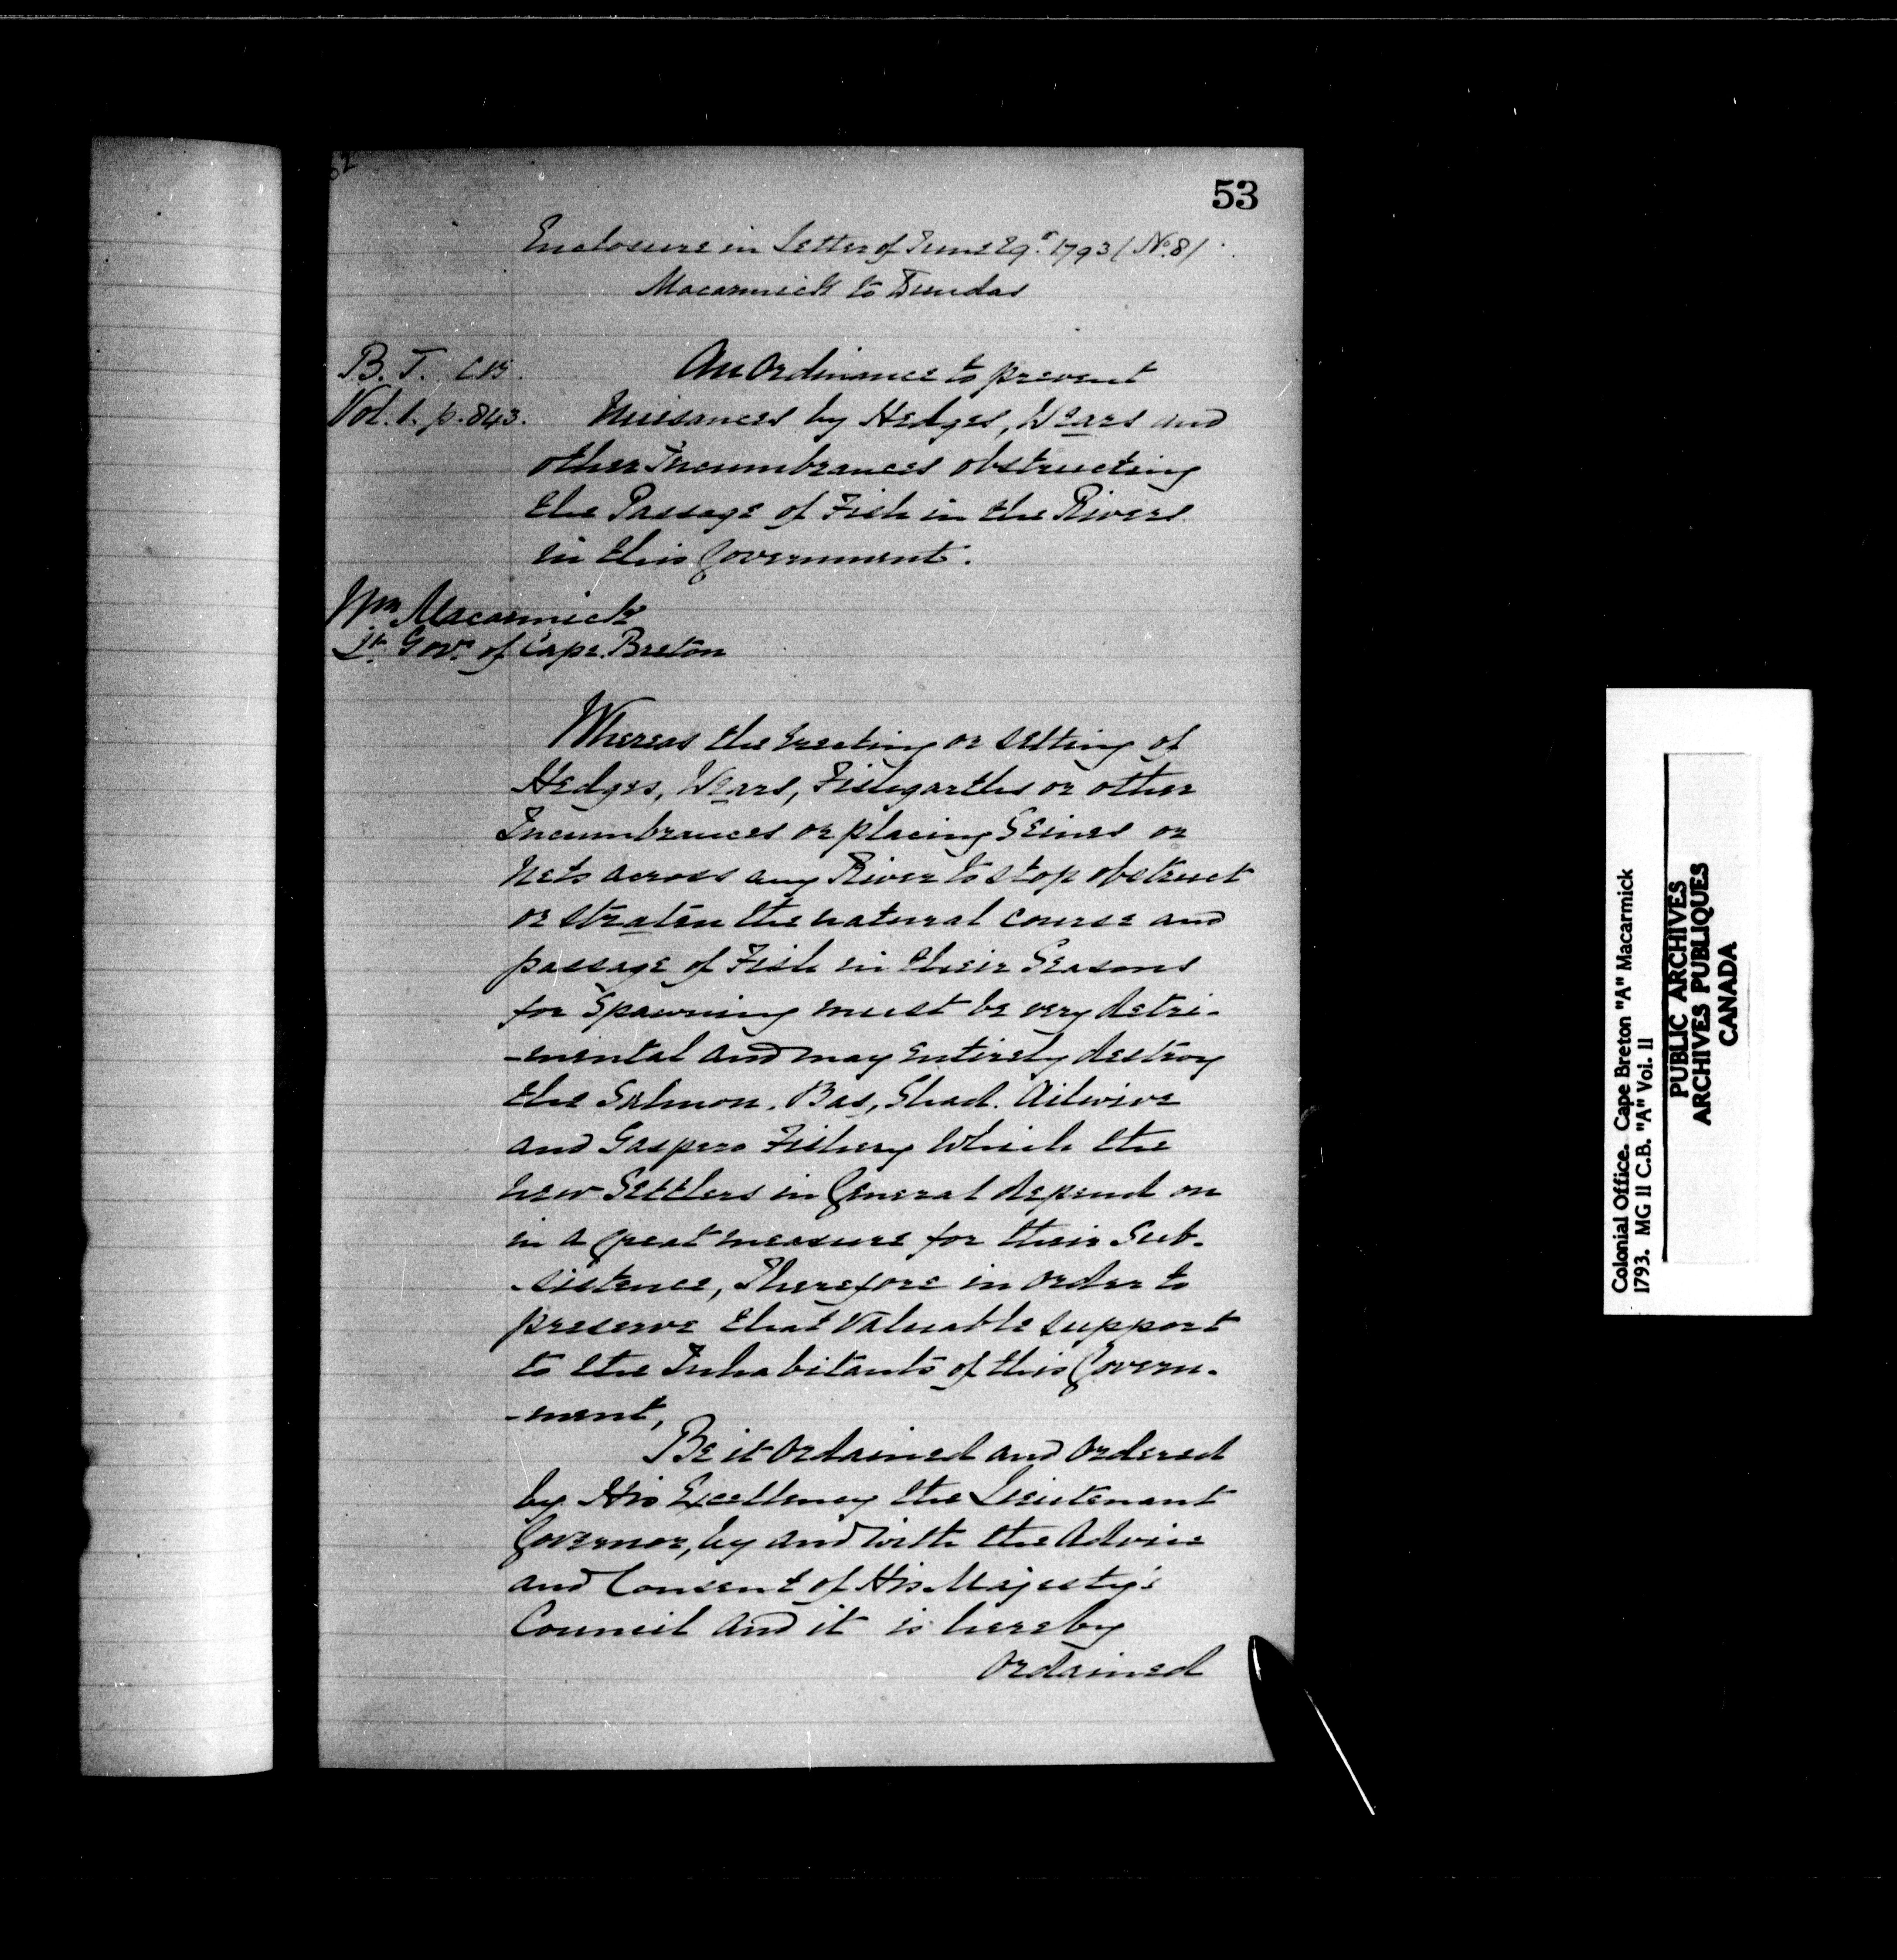 53
Enclosure in Letter of June 29th 1793 (No. 8)
Macarmick to Dundas
B. T. C.B.
Vol. 1. p. 843.
An Ordinance to prevent
Nuisances by Hedges, Wears and
other Incumbrances obstructing
the Passage of Fish in the Rivers
in this Government.
Wm Macarmick
Lt. Govr. of Cape Breton
Whereas the Erecting or setting of
Hedges, Wears, Fishgarths or other
Incumbrances or placing Seines or
Nets across any River to stop obstruct
or straten the natural course and
passage of Fish in their Seasons
for Spawning must be very detri-
-mental and may entirely destroy
the Salmon, Bas, Shad. Ailwive
and Gaspero Fishery which the
new Settlers in General depend on
in a great measure for their Sub-
-sistence, Therefore in order to
preserve that valuable support
to the Inhabitants of this Govern-
-ment,
Be it Ordained and Ordered
by His Excellency the Lieutenant
Governor, by and with the Advice
and Consent of His Majesty's
Council and it is hereby
Ordained
Colonial Office. Cape Breton "A" Macarmick
1793. MG 11 C.B. "A" Vol. 11
PUBLIC ARCHIVES
ARCHIVES PUBLIQUES
CANADA